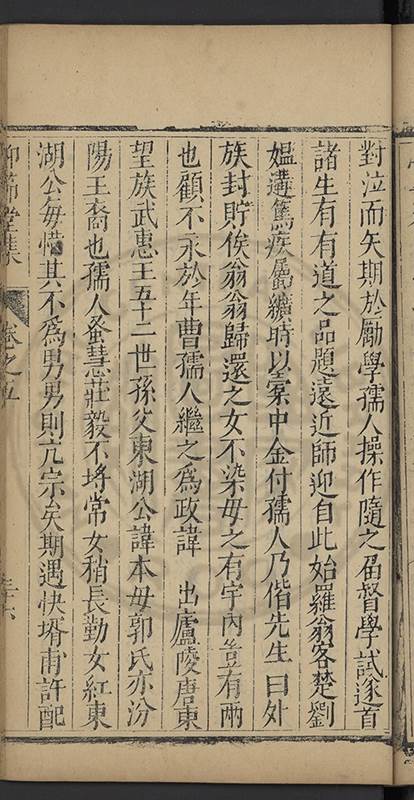 對泣而矢期於勵學孺人操作隨之畱督學試遂首
諸生有有道之品題遠近師迎自此始羅翁客楚劉
媼遘篤疾屬纊時以橐中金付孺人乃偕先生曰外
族封貯俟翁翁歸還之女不染母之有宇內豈有兩
也顧不永於年曹孺人繼之為政諱　出廬陵唐東
望族武惠王五十二世孫父東湖公諱本母郭氏亦汾
陽王裔也孺人蚤慧莊毅不埒常女稍長勤女紅東
湖公每惜其不為男男則亢宗矣期遇快壻甫許配
仰節堂集 卷之五 三十六